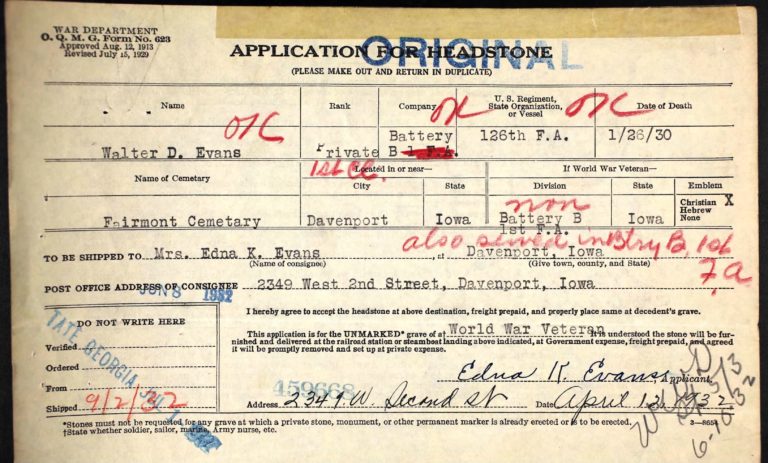 WAR DEPARTMENT
O. Q. M. G. Form No. 623
Approved Aug. 12, 1913
Revised July 15, 1929
ORIGINAL
APPLICATION FOR HEADSTONE
(PLEASE MAKE OUT AND RETURN IN DUPLICATE)
Name Rank Company U. S. Regiment, State Organization, or Vessel Date of Death
OK OK OK
Walter D. Evans Private Battery B 1 F.A. 126th F.A. 1/26/30
1st Cl.
Name of Cemetary Located in or near— If World War Veteran— Emblem
City State Division State Christian X
Hebrew
None
non
Fairmont Cemetary Davenport Iowa Battery B 1st F.A. Iowa
also served in Btry B, 1st F.A
TO BE SHIPPED TO Mrs. Edna K. Evans at Davenport, Iowa
(Name of consignee) (Give town, county, and State)
POST OFFICE ADDRESS OF CONSIGNEE 2349 West 2nd Street, Davenport, Iowa
JUN 8 1932
I hereby agree to accept the headstone at above destination, freight prepaid, and properly place same at decedent's grave.
DO NOT WRITE HERE
This application is for the UNMARKED* grave of a† World War Veteran It is understood the stone will be fur-
nished and delivered at the railroad station or steamboat landing above indicated, at Government expense, freight prepaid, and agreed
it will be promptly removed and set up at private expense.
Verified
Ordered
From
Shipped 9/2/32
TATE GEORGIA
459668
Edna K. Evans, Applicant
Address 2349 W. Second St Date April 12, 1932
6-10-32
*Stones must not be requested for any grave at which a private stone, monument, or other permanent marker is already erected or is to be erected.
†State whether soldier, sailor, marine, Army nurse, etc.